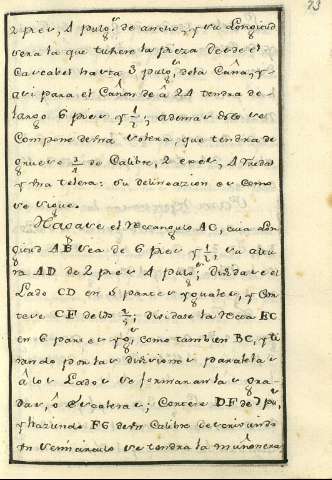 73
2 pies, 4 pulg.s de ancho, y su longitud
sera la que tubiere la pieza desde el
Cascabel hasta 3 pulg.s dela Caña, y
asi para el Cañon de â 24 tendra de
largo 6 pies y 1/2, ademas esto se
Compone de una solera, que tendra de
grueso 3/4 de Calibre, 2 exes, 4 ruedas
y una telera: su delineazion es como
se sigue.
Hagase el Rectangulo AC, cuia lon
gitud AB sea de 6 pies y 1/2, su altu
ra AD de 2 pies 4 pulg.s; dividase el
Lado CD en 5 partes yguales, y Con
tese CE de; dividase la Recta EC
en 6 partes yg.s, como tambien BC, y ti
rando por las divisiones paralelas
â los Lados se formaran las gra
das, ô Escaleras; Cortese DF de 7 pu.s,
y haziendo FG de un Calibre descriviendo
un semicirculo se tendra la muñonera